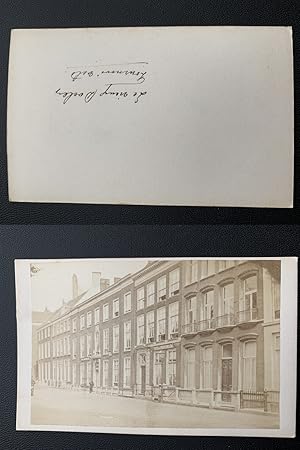 Le vieux Doelen
Tournooi veld